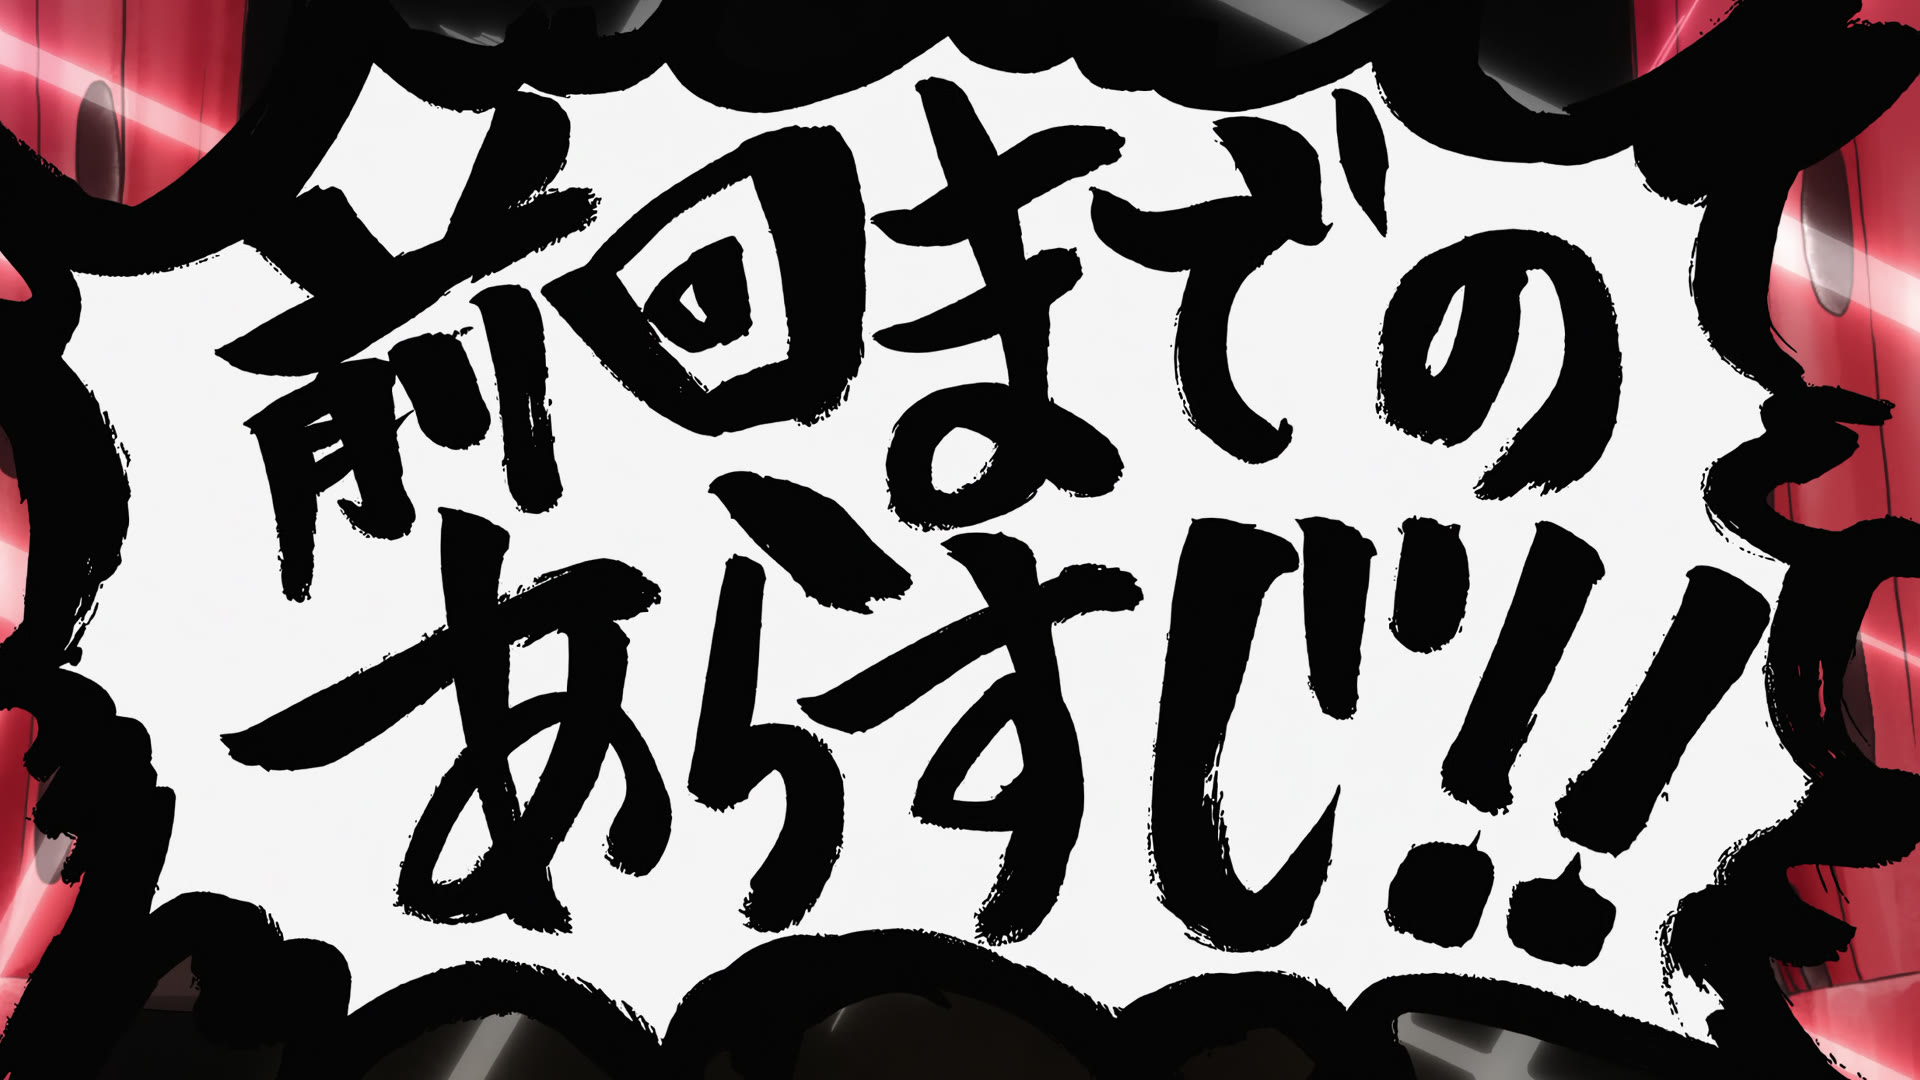 前回までの
あらすじ!!